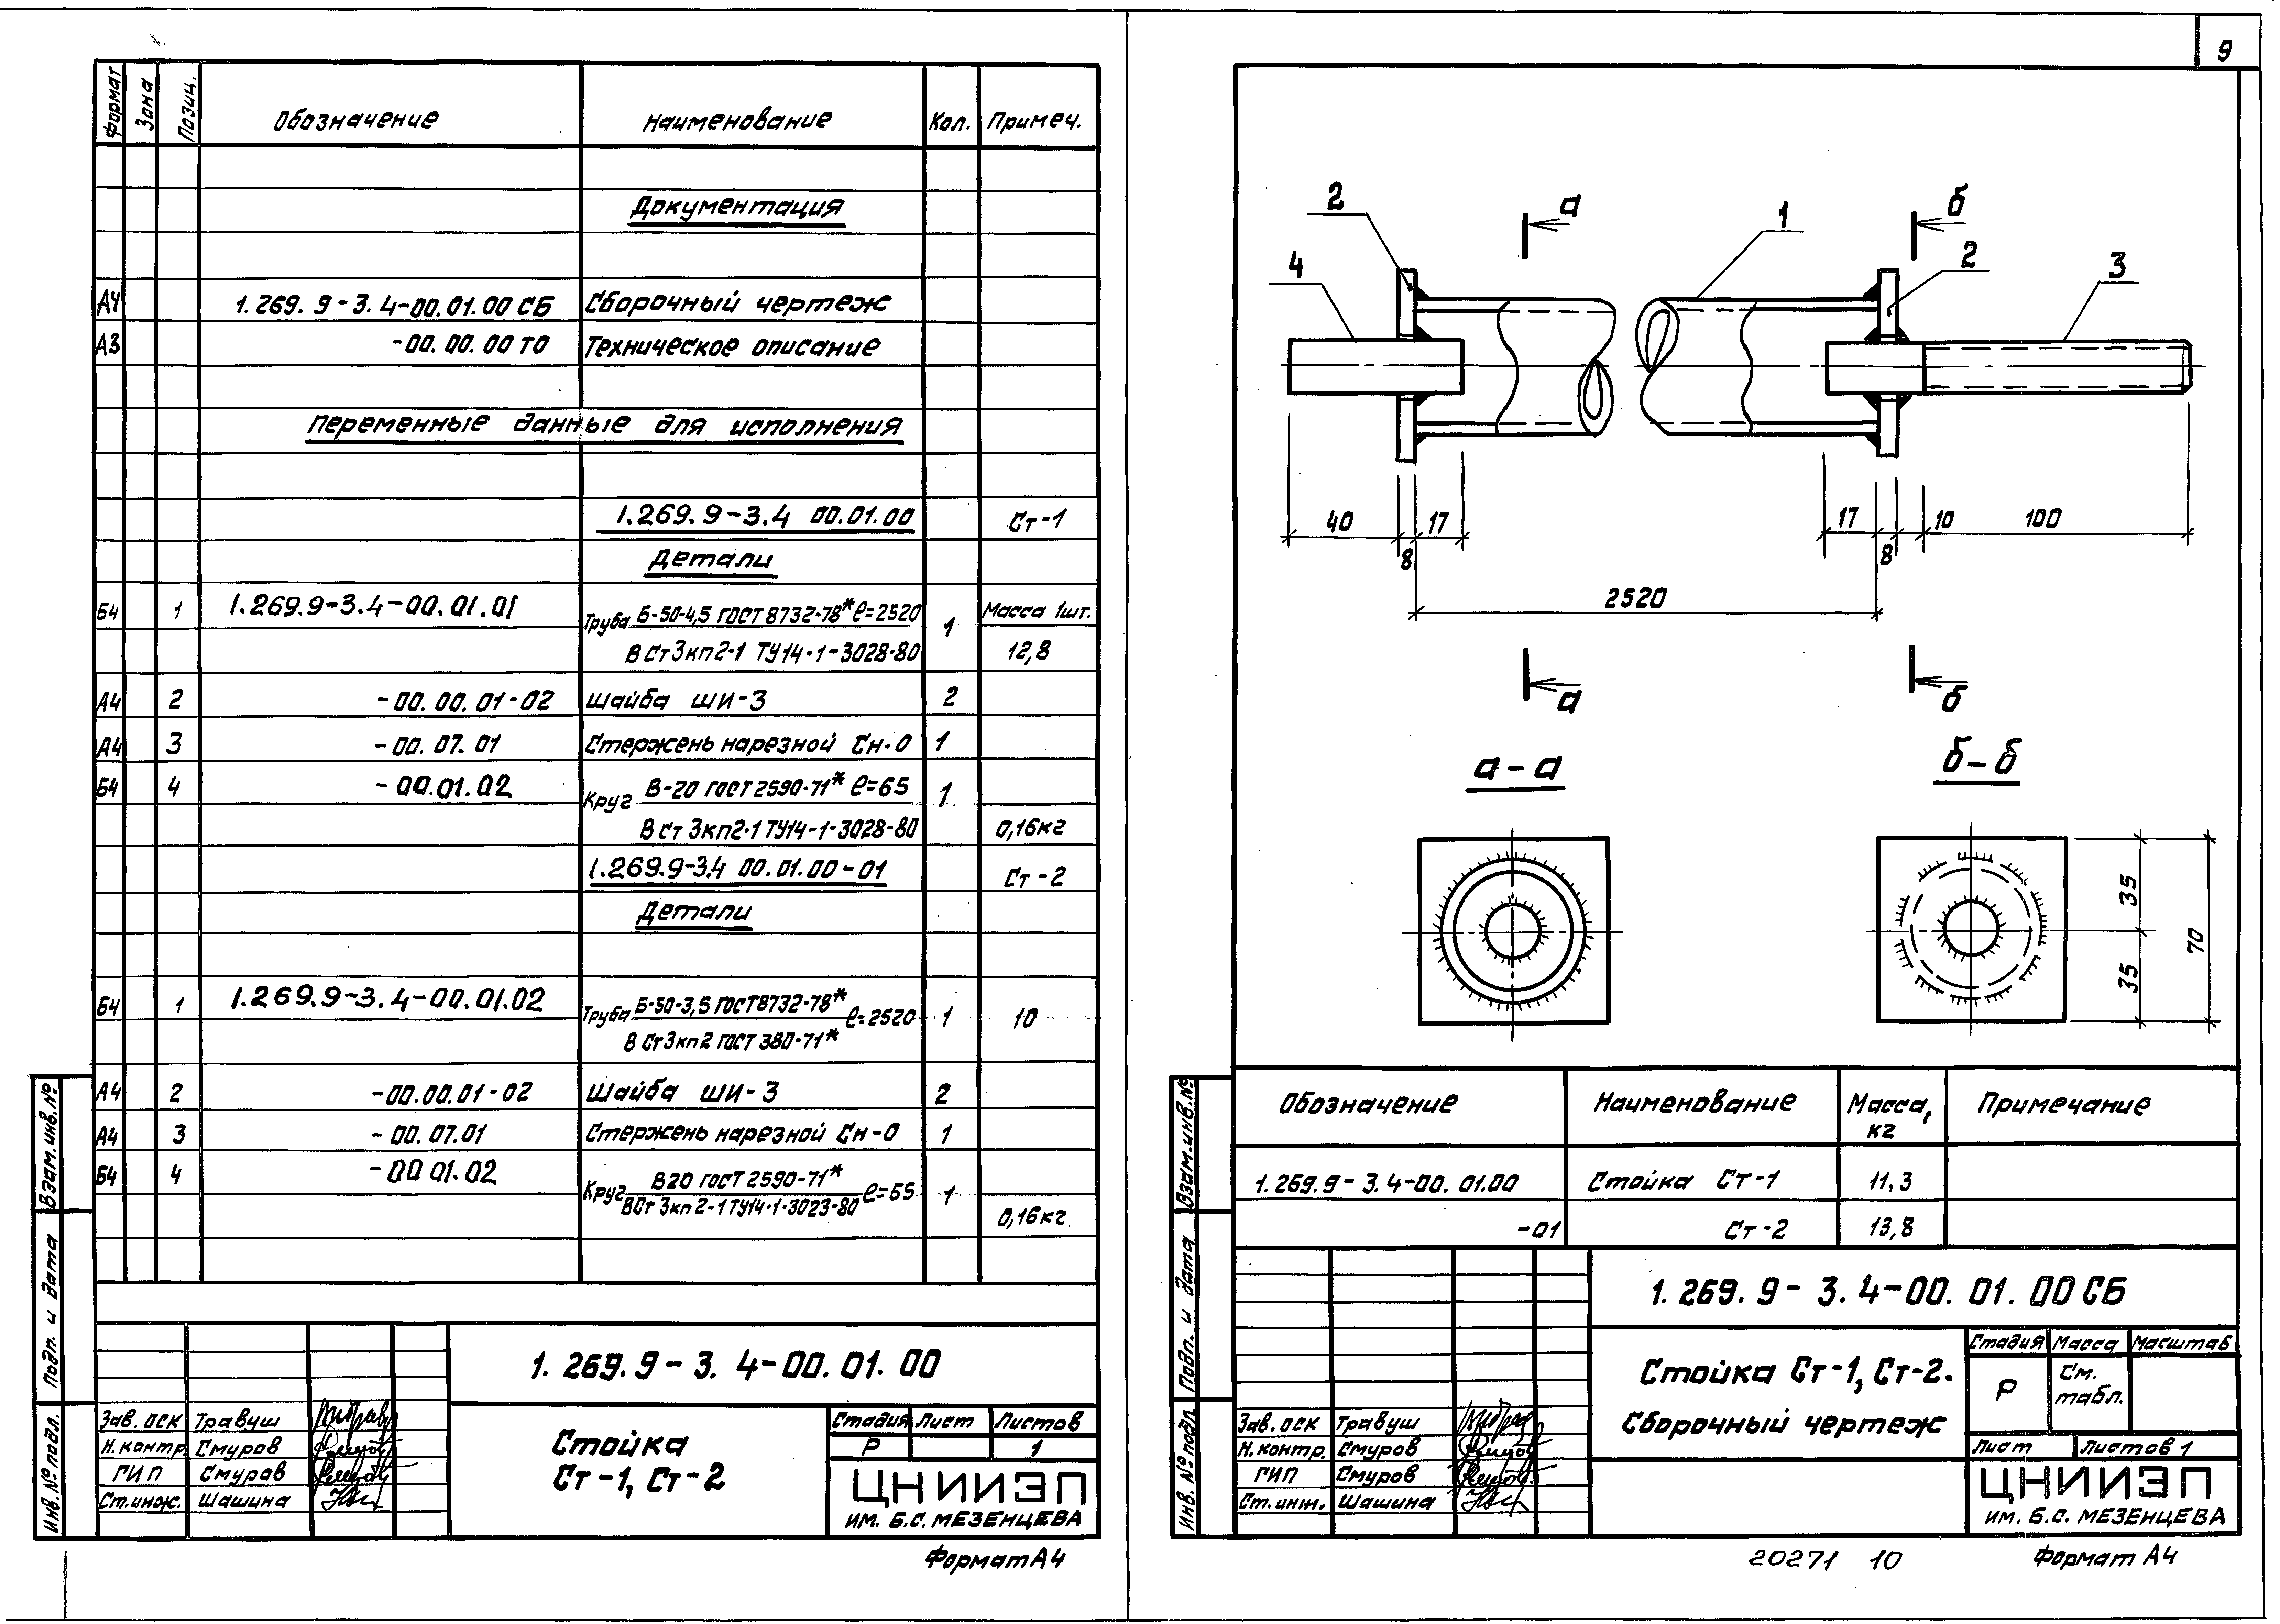 Формат Зона Позиц. Обозначение Наименование Кол. Примеч.
Документация
А4 1.269.9-3.4-00.01.00 СБ Сборочный чертеж
А3 -00.00.00 ТО Техническое описание
Переменные данные для исполнения
1.269.9-3.4 00.01.00 Ст-1
Детали
Б4 1 1.269.9-3.4-00.01.01 Труба Б-50-4,5 ГОСТ 8732-78* ℓ=2520 1 Масса 1шт.
В Ст3кп2-1 ТУ14-1-3028-80 12,8
А4 2 -00.00.01-02 Шайба ШИ-3 2
А4 3 -00.07.01 Стержень нарезной Сн-0 1
Б4 4 -00.01.02 Круг В-20 ГОСТ 2590-71* ℓ=65 1
В Ст 3кп2-1 ТУ14-1-3028-80 0,16кг
1.269.9-3.4 00.01.00-01 Ст-2
Детали
Б4 1 1.269.9-3.4-00.01.02 Труба Б-50-3,5 ГОСТ8732-78* ℓ=2520 1 10
В Ст3кп2 ГОСТ 380-71*
А4 2 -00.00.01-02 Шайба ШИ-3 2
А4 3 -00.07.01 Стержень нарезной Сн-0 1
Б4 4 -00 01.02 Круг В20 ГОСТ 2590-71* ℓ=65 1
ВСт 3кп2-1 ТУ14-1-3023-80 0,16кг
Взам.инв.№
Подп. и дата
Инв.№ подл.
1.269.9-3.4-00.01.00
Зав. ОСК Травуш
Н.контр. Смуров
ГИП Смуров
Ст.инж. Шашина
Стойка
Ст-1, Ст-2
Стадия Лист Листов
Р 1
ЦНИИЭП
ИМ. Б.С. МЕЗЕНЦЕВА
Формат А4
9
2 а 1 б
4 2 3
40 8 17 17 8 10 100
2520
а б
а-а б-б
35 35 70
Обозначение Наименование Масса, кг Примечание
1.269.9-3.4-00.01.00 Стойка Ст-1 11,3
-01 Ст-2 13,8
Взам.инв.№
Подп. и дата
Инв.№ подл.
1.269.9-3.4-00.01.00 СБ
Зав. ОСК Травуш
Н.контр. Смуров
ГИП Смуров
Ст.инж. Шашина
Стойка Ст-1, Ст-2.
Сборочный чертеж
Стадия Масса Масштаб
Р См. табл.
Лист Листов 1
ЦНИИЭП
ИМ. Б.С. МЕЗЕНЦЕВА
20271 10
Формат А4